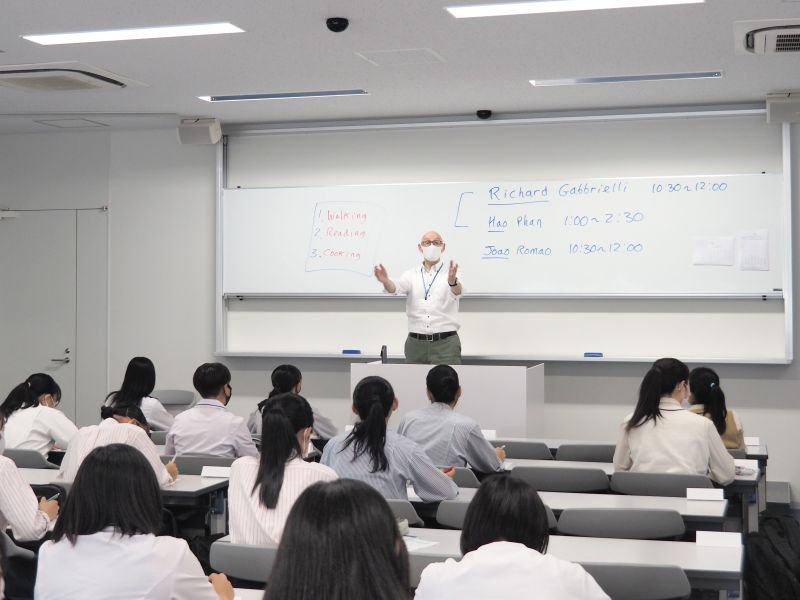 1. Walking
2. Reading
3. Cooking
Richard Gabbrielli 10:30~12:00
Hao Phan 1:00~2:30
Joao Romao 10:30~12:00